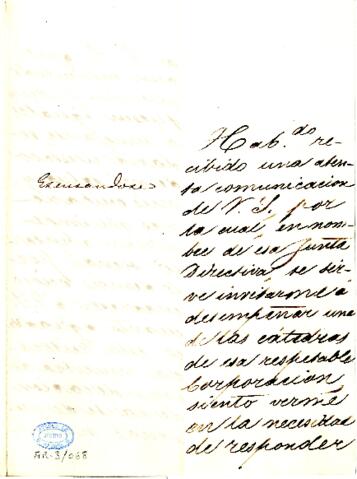 Excusandose
Hab.do re-
cibido una aten-
ta comunicacion
de V. S. por
la cual, en nom-
bre de esa Junta
Directiva, se sir-
ve invitarme á
desempeñar una
de las cátedras
de esa respetable
Corporacion,
siento verme
en la necesidad
de responder
AR-3/068